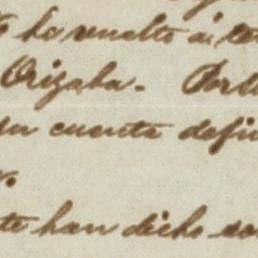 he vuelto á te
Orizaba. Por
su cuenta defin
te han dicho